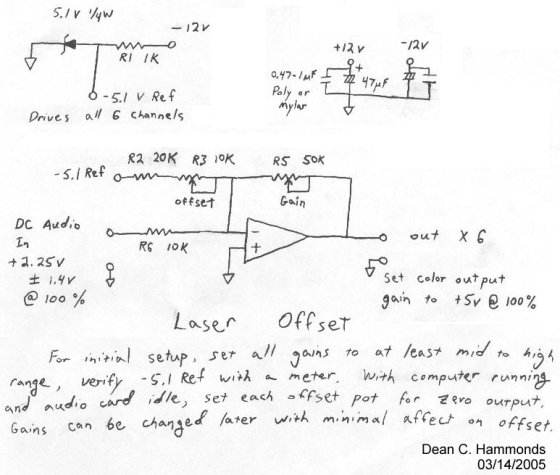 5.1V 1/4W
-12V
R1 1K
-5.1 V Ref
Drives all 6 channels
+12V
-12V
+
0.47-1µF
Poly or
mylar
47µF
R2 20K
R3 10K
R5 50K
-5.1 Ref
offset
Gain
DC Audio
In
+2.25V
± 1.4V
@ 100%
R6 10K
-
+
out X 6
Set color output
gain to +5V @ 100%
Laser Offset
For initial setup, set all gains to at least mid to high
range, verify -5.1 Ref with a meter. With computer running
and audio card idle, set each offset pot for zero output.
Gains can be changed later with minimal affect on offset.
Dean C. Hammonds
03/14/2005